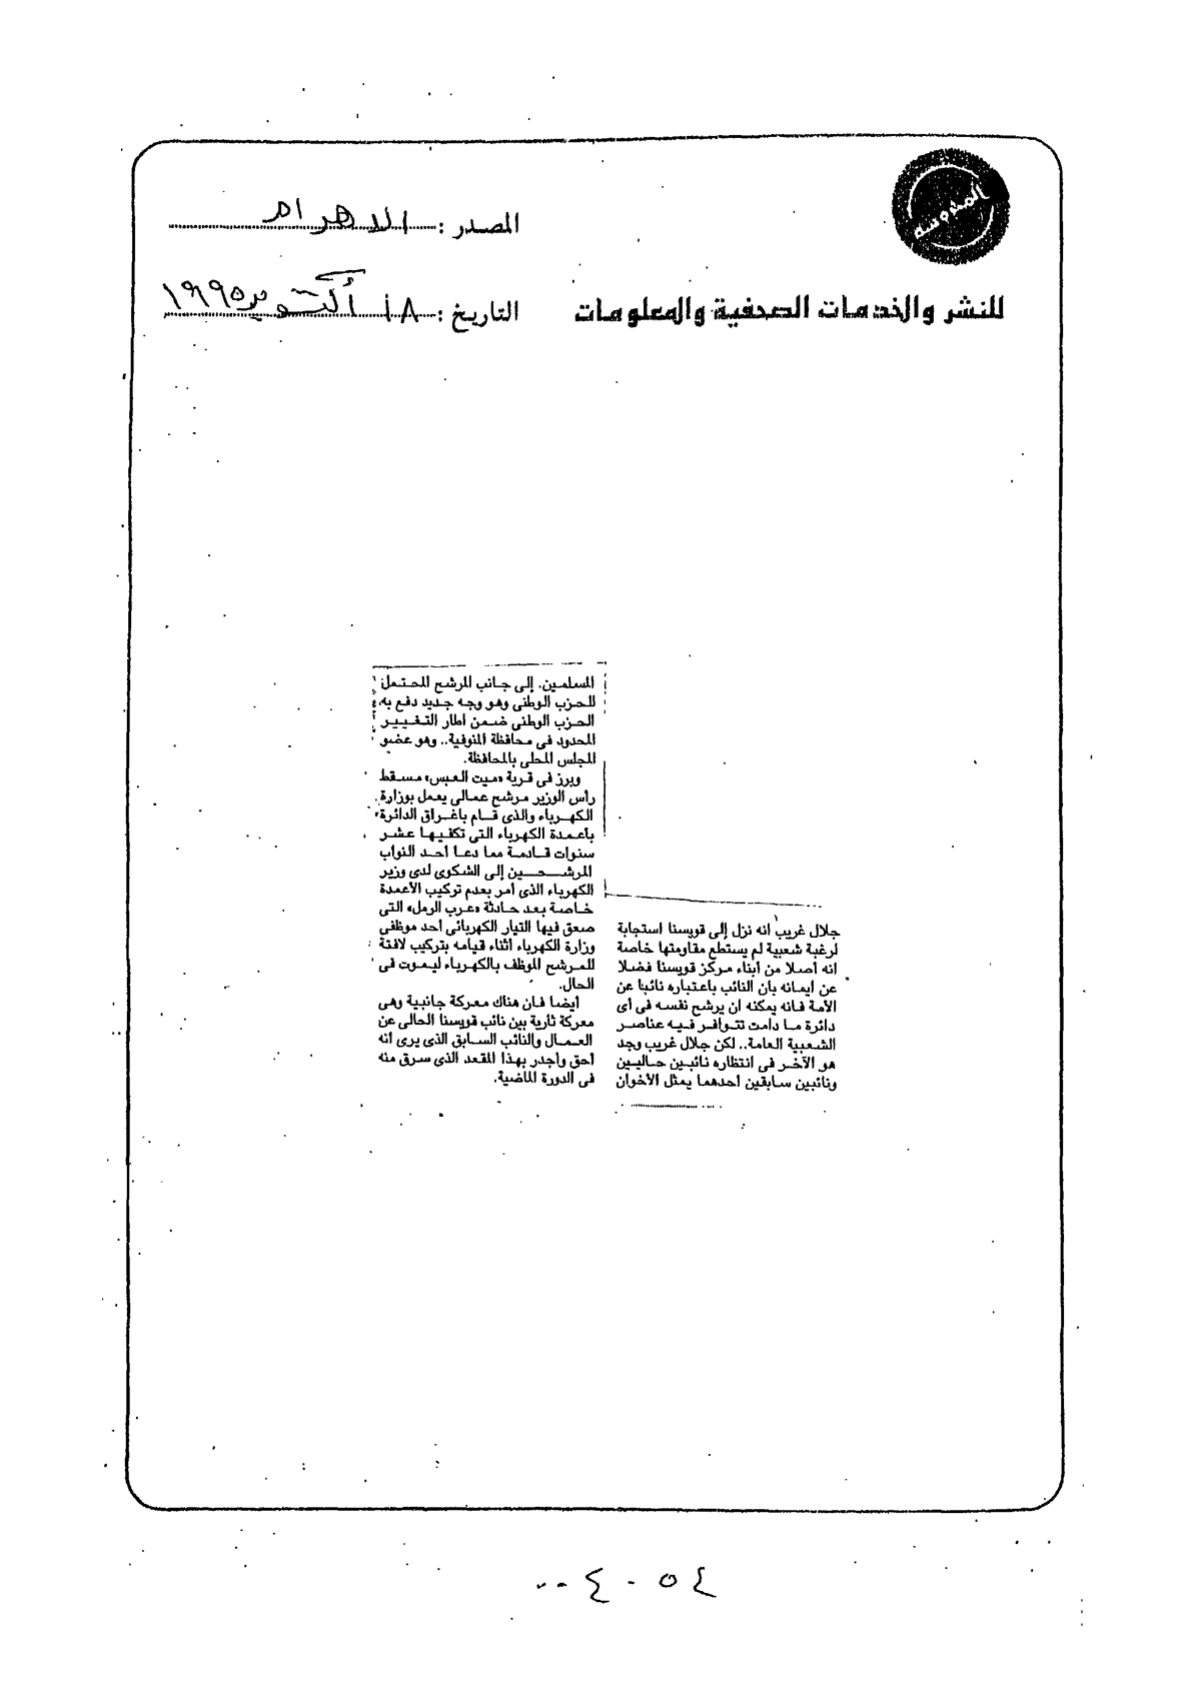 المحروسة
للنشر والخدمات الصحفية والمعلومات
المصدر : الاهرام
التاريخ : ١٨ أكتوبر ١٩٩٥
جلال غريب انه نزل إلى قويسنا استجابة
لرغبة شعبية لم يستطع مقاومتها خاصة
انه أصلا من أبناء مركز قويسنا فضلا
عن إيمانه بان النائب باعتباره نائبا عن
الأمة فانه يمكنه ان يرشح نفسه فى أى
دائرة ما دامت تتوافر فيه عناصر
الشعبية العامة.. لكن جلال غريب وجد
هو الآخر فى انتظاره نائبين حاليين
ونائبين سابقين أحدهما يمثل الأخوان
المسلمين. إلى جانب المرشح المحتمل
للحزب الوطنى وهو وجه جديد دفع به
الحزب الوطنى ضمن اطار التغيير
المحدود فى محافظة المنوفية.. وهو عضو
المجلس المحلى بالمحافظة.
وبرز فى قرية «ميت العبس» مسقط
رأس الوزير مرشح عمالى يعمل بوزارة
الكهرباء والذى قام باغراق الدائرة
باعمدة الكهرباء التى تكفيها عشر
سنوات قادمة مما دعا أحد النواب
المرشحين إلى الشكوى لدى وزير
الكهرباء الذى أمر بعدم تركيب الأعمدة
خاصة بعد حادثة «عرب الرمل» التى
صعق فيها التيار الكهربائى أحد موظفى
وزارة الكهرباء اثناء قيامه بتركيب لافتة
للمرشح الموظف بالكهرباء ليموت فى
الحال.
أيضا فان هناك معركة جانبية وهى
معركة ثارية بين نائب قويسنا الحالى عن
العمال والنائب السابق الذى يرى انه
أحق وأجدر بهذا المقعد الذى سرق منه
فى الدورة الماضية.